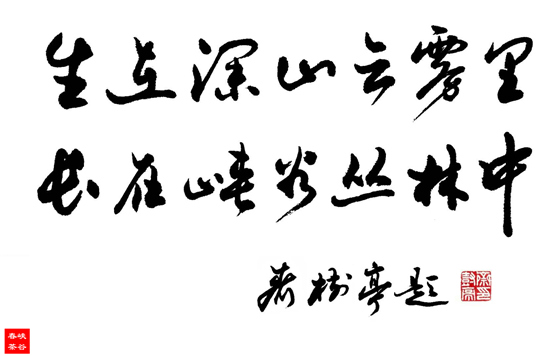 生在深山云雾里
长在峡谷丛林中
樹亭题
峡谷
春茶